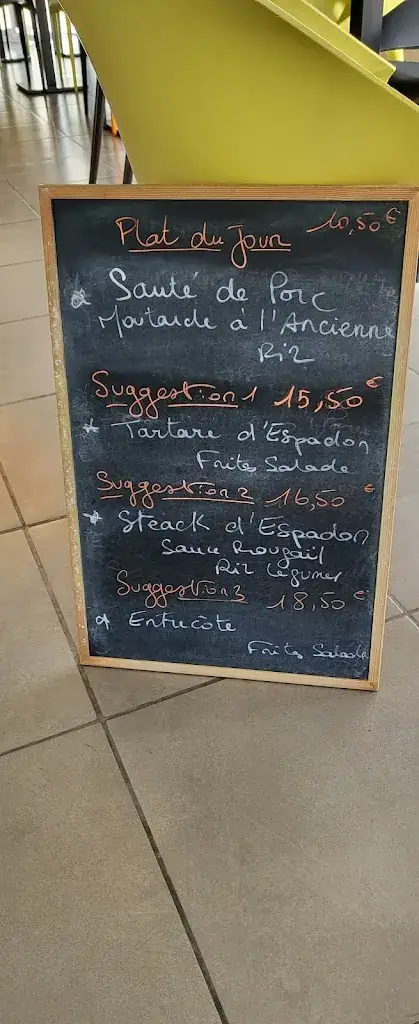 Plat du Jour 10,50€
Sauté de Porc
Moutarde à l'Ancienne
Riz
Suggestion 1 15,50€
Tartare d'Espadon
Frites Salade
Suggestion 2 16,50€
Steack d'Espadon
Sauce Rougail
Riz Légumes
Suggestion 3 18,50€
Entrecôte
Frites Salade